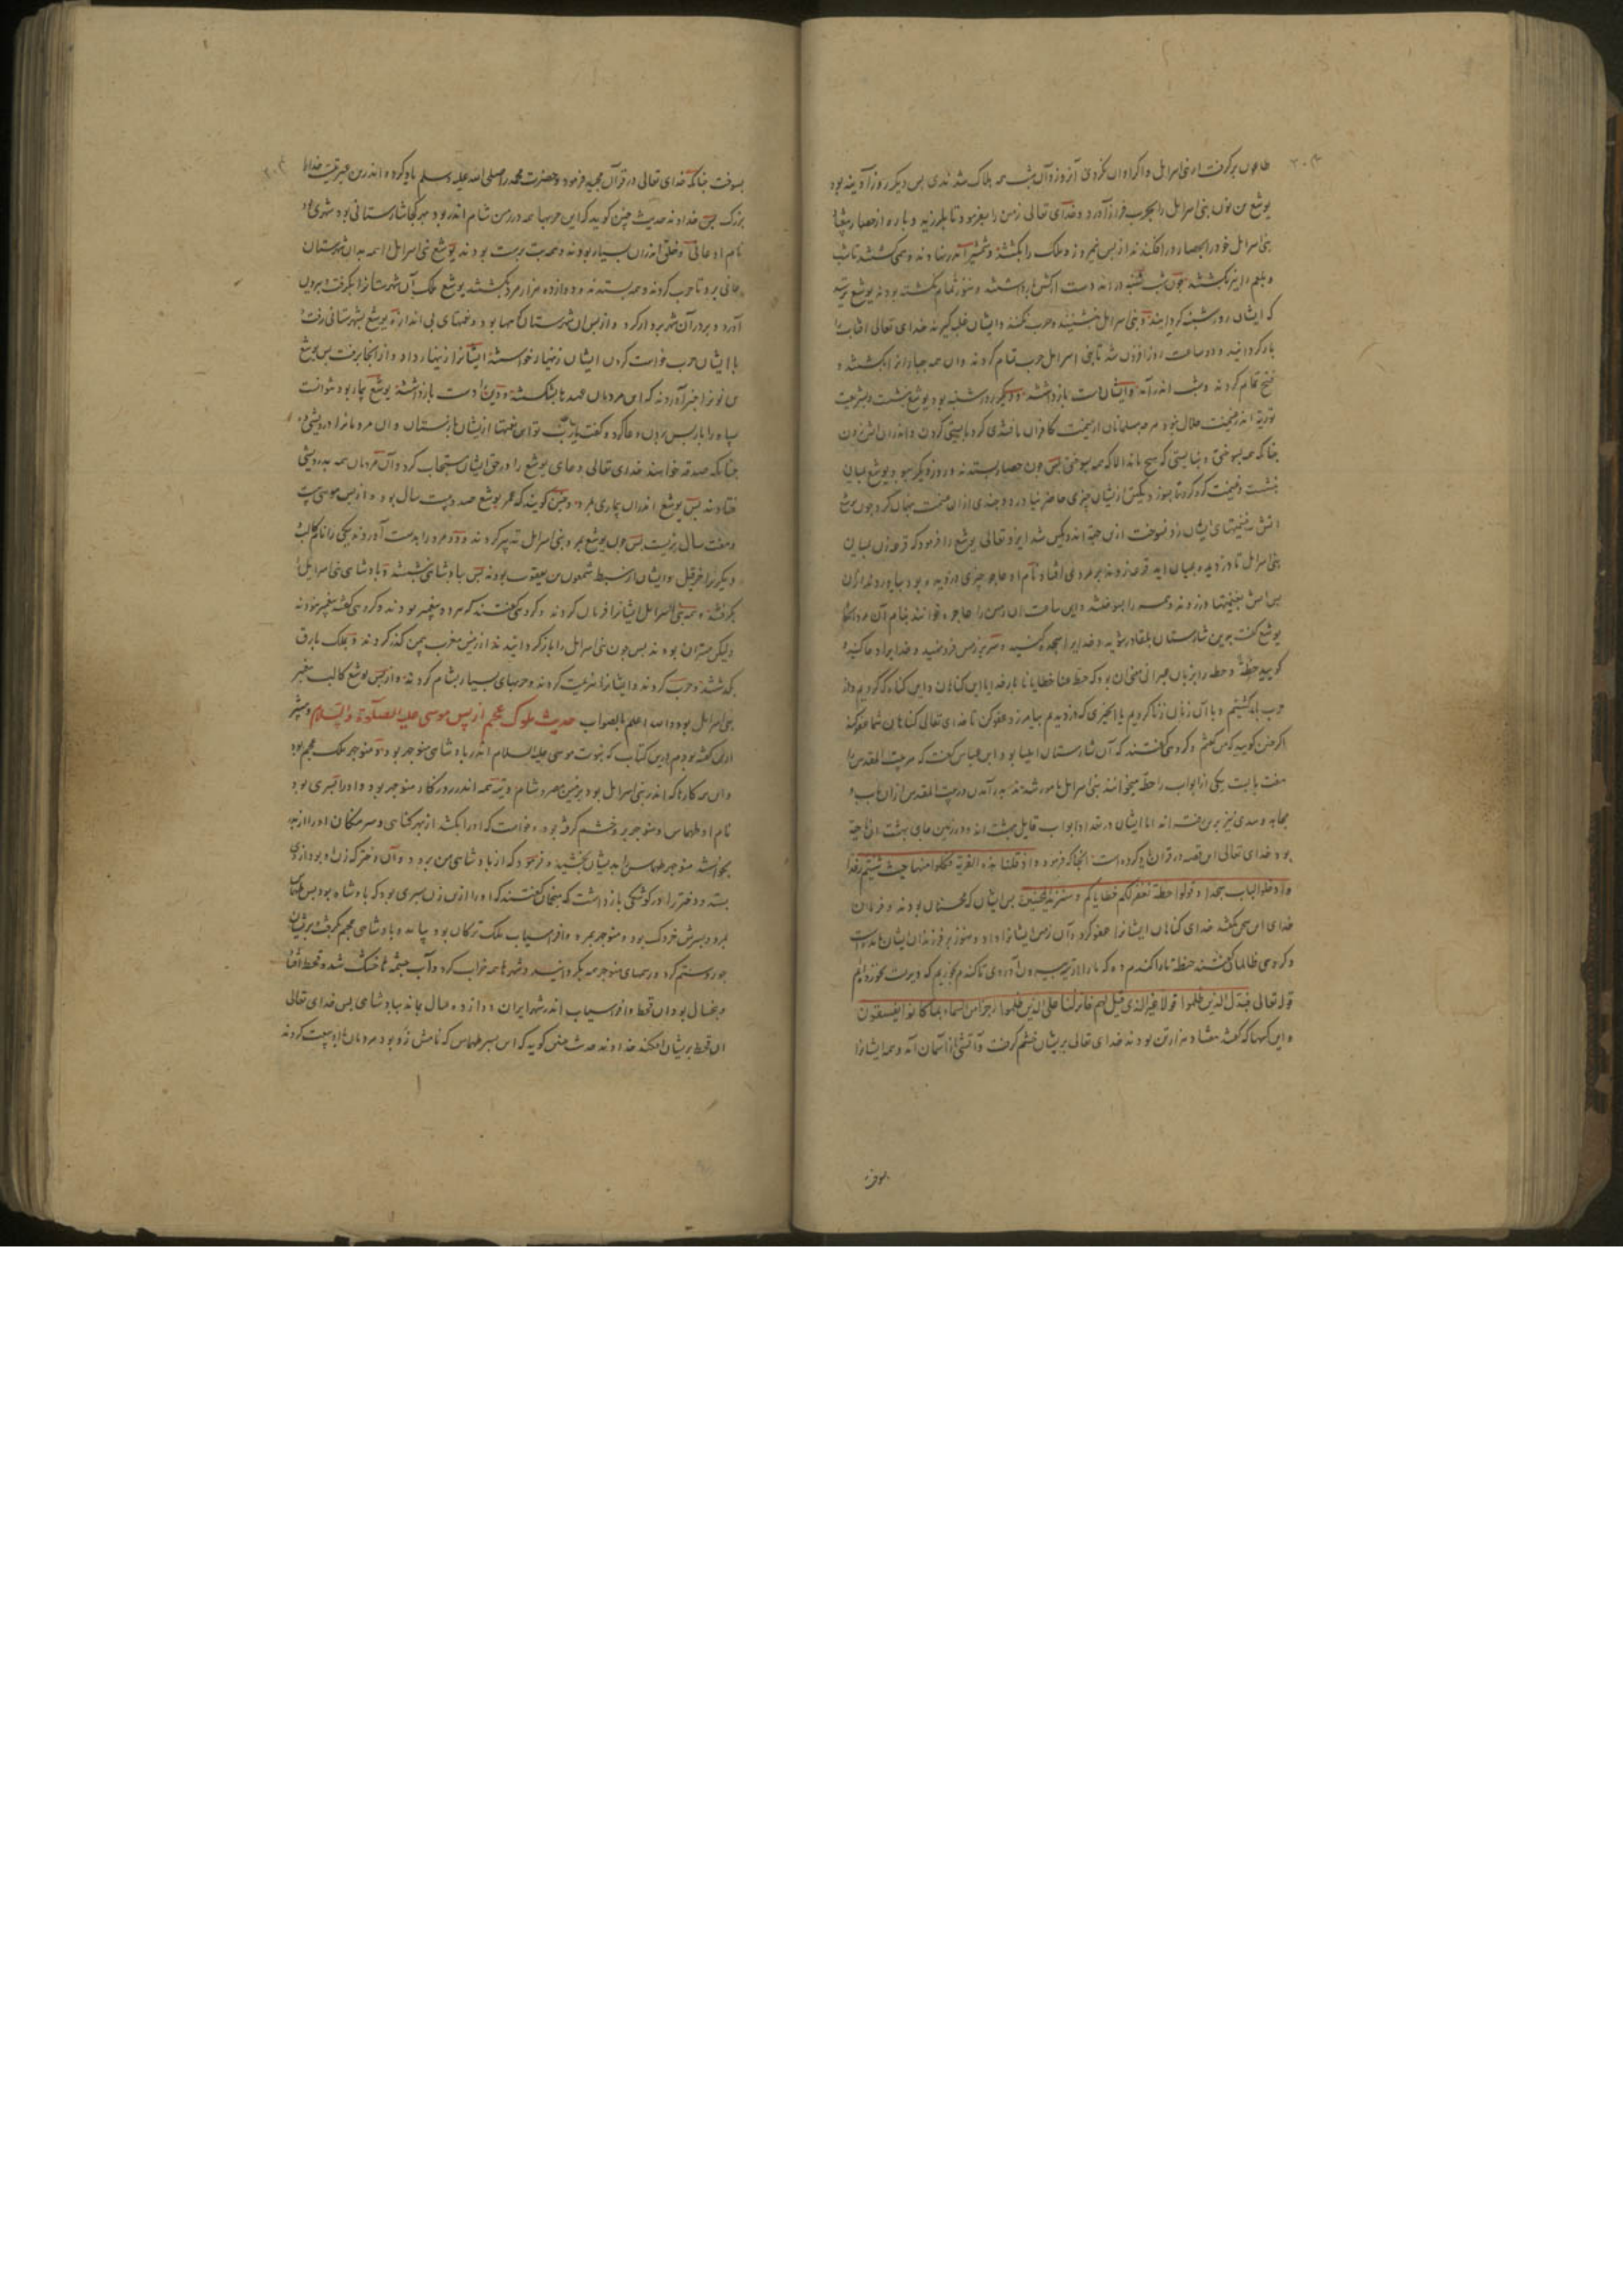 طاعون برگرفت از بنی اسرائیل و اگر اوان نکردی آنروز و آن شب همه هلاک شدندی پس دیگر روز آدینه بود
یوشع بن نون بنی اسرائیل را بحرب فراز آورد و خدای تعالی زمین را بفرمود تا بلرزید و باره از حصار بیفتاد
بنی اسرائیل خود را بحصار در افکندند از پس نیمروز و ملک را بکشتند و شمشیر اندر نهادند و همی کشتند تا شب
و بلعم را نیز بکشتند چون شب شنبه در آمد دست از کشتن بداشتند و هنوز تمام نکشته بودند یوشع بترسید
که ایشان روز شنبه کرد آیند و بنی اسرائیل بنشینند و حرب نکنند و ایشان غلبه گیرند خدای تعالی آفتاب را
باز گردانید و دو ساعت روز افزون شد تا بنی اسرائیل حرب تمام کردند و آن همه جباران را بکشتند و
فتح تمام کردند و شب اندر آمد و ایشان دست بازداشتند و دیگر روز شنبه بود یوشع بنشست و بشریعت
توریة اندر غنیمت حلال نبود مر مسلمانان از غنیمت کافران
چنانکه همه بسوختی و نبایستی که هیچ بماند الا که همه بسوختی پس چون حصار بستدند و روز دیگر ببود یوشع بمیان
بنشست و غنیمت گرد کرد تا بسوزد یکتن ازیشان چیزی حاضر نیاورد و چندی از ان غنیمت پنهان کرد چون یوشع
آتش بغنیمتهای ایشان زد نسوخت ازین جهة اندوهگین شد ایزد تعالی یوشع را فرمود که قرعه زن بمیان
بنی اسرائیل تا دزدیده بمیان آید قرعه زدند بر مردی افتاد نام او عاجر چیزی دزدیده بود بیاورد
پس آتش بغنیمتها در زدند و همه را بسوختند و این ساعت آن زمین را عاجره خوانند بنام آن مرد آنگاه
یوشع گفت بدین شارستان بلقا در شوید و خدایرا سجده کنید و سر بر زمین فرو نهید و خدایرا دعا کنید و
گویید حطة و حطة را بزبان عبرانی معنی آن بود که حط عنا خطایانا یا رب خدایا این گناهان و این گناه که کردیم و از
حرب باز گشتیم و با آن زنان زنا کردیم یا آنچیزی که دزدیدیم بیامرز و عفو کن تا خدای تعالی گناهان شما عفو کند
اگر چنین گویید که من گفتم و گروهی گفتند که آن شارستان ایلیا بود ابن عباس گفت که مر بیت المقدس را
هفت بابست یکی از ابواب را حطة میخوانند بنی اسرائیل مامور شدند بدر آمدن در بیت المقدس از آن باب و
مجاهد و سدی نیز برین رفته اند اما ایشان در تعداد ابواب قایل بهشت اند و در زمین
بود خدای تعالی این قصه در قرآن یاد کرده است آنجا که فرمود و اذ قلنا ادخلوا هذه القریة فکلوا منها حیث شئتم رغدا
و ادخلوا الباب سجدا و قولوا حطة نغفر لکم خطایاکم و سنزید المحسنین پس ایشان که محسنان بودند و فرمان
خدای این سخن بگفتند خدای گناهان ایشانرا عفو کرد و آن زمین ایشانرا داد و هنوز بر فرزندان ایشان مانده است
و گروهی ظالمان گفتند حنطة ما را گندم ده که ما را از تیه بیرون آوردی تا گندم بخوریم که دیرست نخورده ایم
قوله تعالی فبدل الذین ظلموا قولا غیر الذی قیل لهم فانزلنا علی الذین ظلموا رجزا من السماء بما کانوا یفسقون
و این کسها که گفتند هفتاد هزار تن بودند خدای تعالی بریشان خشم گرفت و آتشی از آسمان آمد و همه ایشانرا
بسوخت
بسوخت چنانکه خدای تعالی در قرآن مجید فرمود و حضرت محمد را صلی الله علیه وسلم یاد کرده و اندرین عبرتیست خدایرا
بزرگ پس خداوند حدیث چنین گوید که این حربها همه در زمین شام اندر بود هر کجا شارستانی بود شهری بود
نام او عانی و خلقی اندران بسیار بودند و همه بت پرست بودند یوشع بنی اسرائیل را همه بدان شهرستان
عانی برد تا حرب کردند و همه بستدند و دوازده هزار مرد بکشتند یوشع ملک آن شهرستانرا بگرفت و بیرون
آورد و بر در آن شهر بر دار کرد و از پس آن شهرستان کوهها بود و غنیمتهای بی اندازه یوشع بشهرستانی رفت و
با ایشان حرب خواست کردن ایشان زنهار خواستند ایشانرا زنهار داد و از آنجا برفت پس یوشع
بن نونرا خبر آوردند که این مردمان عهدها بشکستند و دین را دست بازداشتند یوشع بیمار بود نتوانست
سپاه را باز پس بردن دعا کرد و گفت یا رب تو این نعمتها ازیشان باز ستان و آن مردمانرا درویشی ده
چنانکه صدقه خواهند خدای تعالی دعای یوشع را در حق ایشان مستجاب کرد و آن مردمان همه بدرویشی
افتادند پس یوشع اندران بیماری بمرد و چنین گویند که عمر یوشع صد و بیست سال بود و از پس موسی بیست
و هفت سال بزیست پس چون یوشع بمرد بنی اسرائیل تدبیر کردند و دو مرد را بدست آوردند یکی را نام کالب
و دیگر را خرقیل و ایشان از سبط شمعون بن یعقوب بودند پس بپادشاهی بنشستند و پادشاهی بنی اسرائیل را
بگرفتند و همه بنی اسرائیل ایشانرا فرمان کردند و گروهی گفتند که هر دو پیغمبر بودند و گروهی گفتند پیغمبر نبودند
ولیکن مهتران بودند پس چون بنی اسرائیل را باز گردانیدند از زمین مغرب بیمن گذر کردند و بملک بارق
بگذشتند و حرب کردند و ایشانرا هزیمت کردند و حربهای بسیار بشام کردند و از پس یوشع کالب پیغمبر
بنی اسرائیل بود والله اعلم بالصواب حدیث ملوک عجم از پس موسی علیه الصلوة والسلام و پیشتر
ازین گفته بودم درین کتاب که نبوت موسی علیه السلام اندر پادشاهی منوجهر بود و منوجهر ملک عجم بود
و آن همه کارها که اندر بنی اسرائیل بود بزمین مصر و شام و تیه همه اندر روزگار منوجهر بود و او را پسری بود
نام او طهماس و منوجهر برو خشم گرفته بود و خواست که او را بکشد از بهر گناهی و سرهنگان او را ازو
بخواستند منوجهر طهماس را بدیشان بخشید و فرمود که از پادشاهی من برود و آن دختر که زن او بود ازوی
بستد و دختر را در کوشکی بازداشت که منجمان گفتند که او را ازین زن پسری بود که پادشاه بود پس طهماس
بمرد و پسرش خردک بود و منوجهر بمرد و افراسیاب ملک ترکان بود بیامد و پادشاهی عجم بگرفت و بریشان
جور و ستم کرد و رسمهای منوجهر همه بگردانید و شهرها همه خراب کرد و آب چشمه ها خشک شد و قحط افتاد
و پنجسال بود آن قحط و افراسیاب اندر شهر ایران دوازده سال بماند بپادشاهی پس خدای تعالی
آن قحط بریشان افکند خداوند حدیث چنین گوید که این پسر طهماس که نامش زو بود مردمان او را بیعت کردند